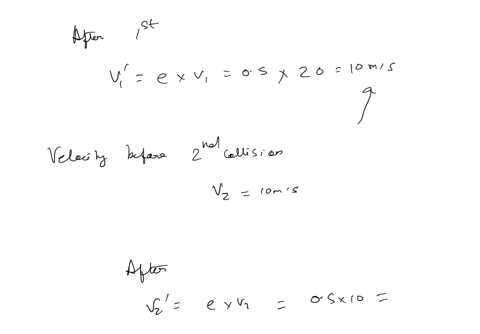 After 1st
V₁' = e × V₁ = 0.5 × 20 = 10 m/s
Velocity before 2nd collision
V₂ = 10 m/s
After
V₂' = e × V₂ = 0.5 × 10 =